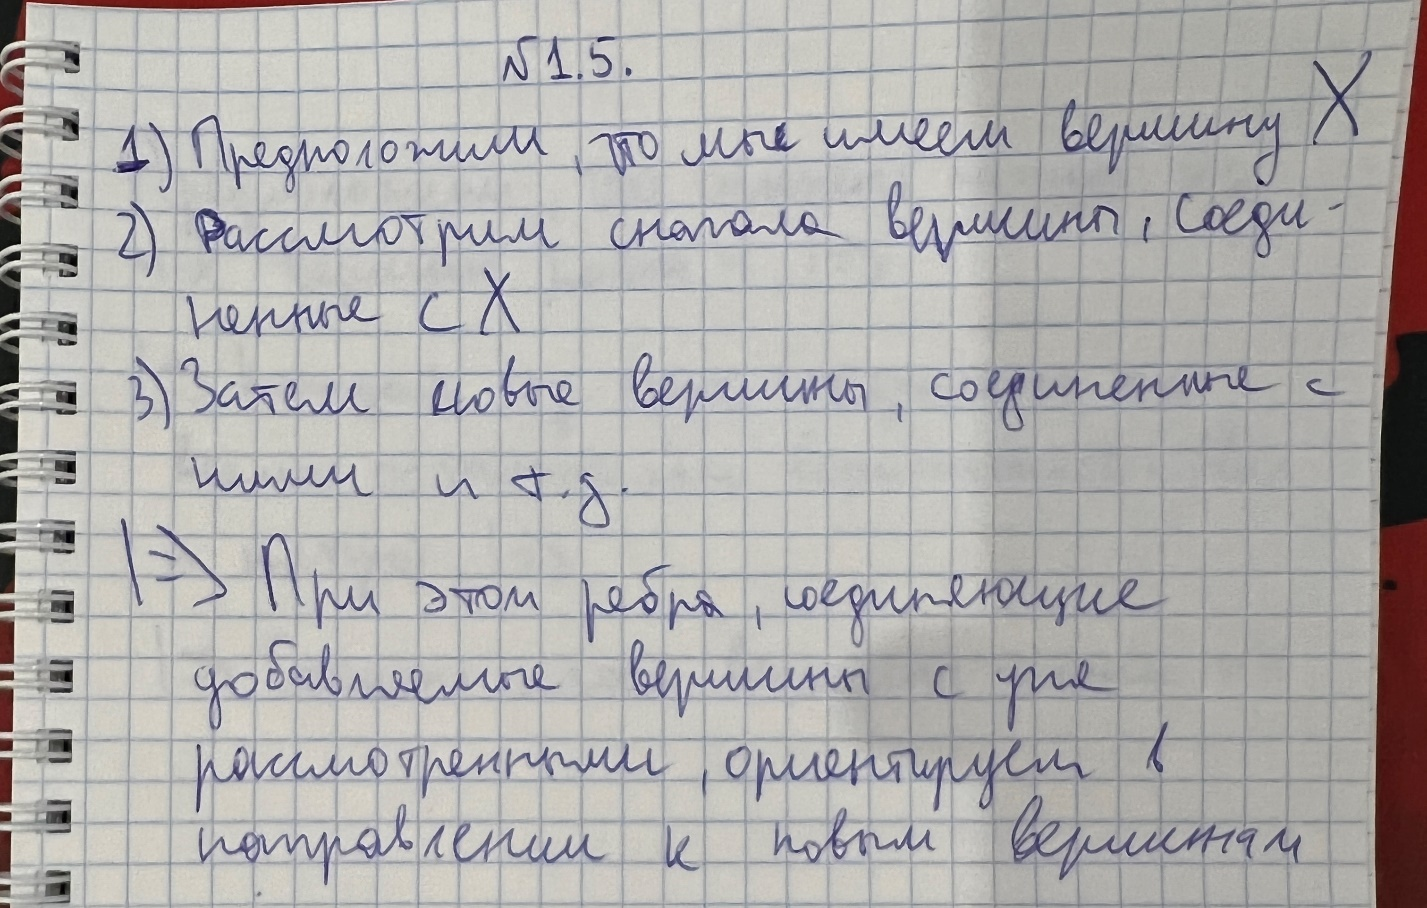 №1.5.
1) Предположим, что мы имеем вершину X
2) Рассмотрим сначала вершины, соеди-
ненные с X
3) Затем новые вершины, соединенные с
ними и т.д.
|=> При этом ребра, соединяющие
добавляемые вершины с уже
рассмотренными, ориентируем в
направлении к новым вершинам